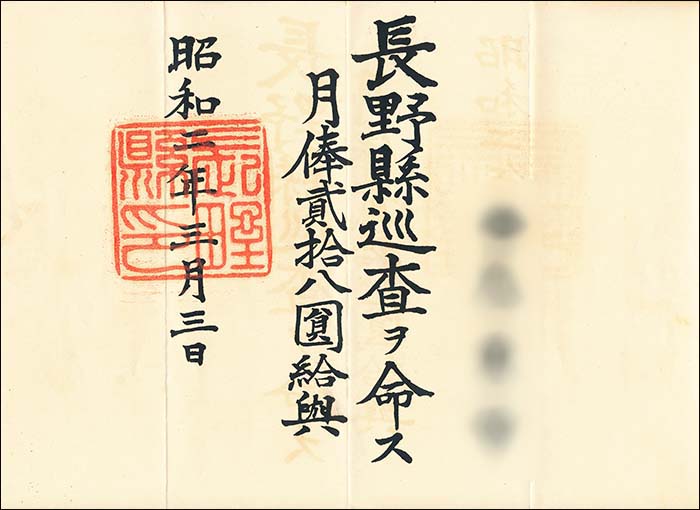 長野縣巡査ヲ命ス
月俸貳拾八圓給與
昭和二年三月三日
長野縣印